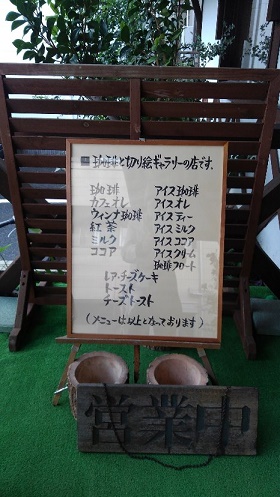 珈琲と切り絵ギャラリーの店です。
珈琲
カフェオレ
ウィンナ珈琲
紅茶
ミルク
ココア
アイス珈琲
アイスオレ
アイスティー
アイスミルク
アイスココア
アイスクリーム
珈琲フロート
レアーチーズケーキ
トースト
チーズトースト
(メニューは以上となっております)
営業中